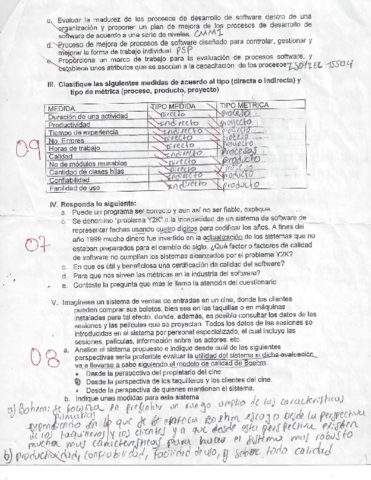 c. Evaluar la madurez de los procesos de desarrollo de software dentro de una
organización y proponer un plan de mejora de los procesos de desarrollo de
software de acuerdo a una serie de niveles. CMMI
d. Proceso de mejora de procesos de software diseñado para controlar, gestionar y
mejorar la forma de trabajo individual PSP
e. Proporciona un marco de trabajo para la evaluación de procesos software, y
establece unos atributos que se asocian a la capacidad de los procesos
III. Clasifique las siguientes medidas de acuerdo al tipo (directa o indirecta) y
tipo de métrica (proceso, producto, proyecto)
MEDIDA TIPO MEDIDA TIPO METRICA
Duración de una actividad directo
Productividad indirecto
Tiempo de experiencia
No. Errores directo
Horas de trabajo directo
Calidad indirecto
No de módulos reusables
Cantidad de clases hijas
Confiabilidad indirecto
Facilidad de uso indirecto producto
09
IV. Responda lo siguiente:
a. Puede un programa ser correcto y aun así no ser fiable, explique
b. Se denominó "problema Y2K" a la incapacidad de un sistema de software de
representar fechas usando cuatro dígitos para codificar los años. A fines del
año 1999 mucho dinero fue invertido en la actualización de los sistemas que no
estaban preparados para el cambio de siglo. ¿Qué factor o factores de calidad
de software no cumplían los sistemas alcanzados por el problema Y2K?
c. En que es útil y beneficiosa una certificación de calidad del software?
d. Para que nos sirven las métricas en la industria del software?
e. Conteste la pregunta que más le llamo la atención del cuestionario
07
V. Imagínese un sistema de ventas de entradas en un cine, donde los clientes
pueden comprar sus boletos, bien sea en las taquillas o en máquinas
instaladas para tal efecto, donde, además, es posible consultar los datos de las
sesiones y las películas que se proyectan. Todos los datos de las sesiones so
introducidas en el sistema por personal especializado, el cual incluye las
sesiones, películas, información sobre los actores, etc
08
a. Analice el sistema propuesto e indique desde cuál de las siguientes
perspectivas sería preferible evaluar la utilidad del sistema si dicha evaluación
va a llevarse a cabo siguiendo el modelo de calidad de Boehm.
• Desde la perspectiva del propietario del cine
• Desde la perspectiva de los taquilleros y los clientes del cine.
• Desde la perspectiva de quienes mantienen el sistema.
b. Indique unas medidas para este sistema
a) Bohem: se focaliza en un rango amplio de las características
primarias
dependiendo en lo que de Boehm escogo desde la perspectiva
de los taquilleros y los clientes ya que desde esta perspectiva existen
mucha mus características para hacer el sistema mus robusto
b) productividad, confiabilidad, facilidad de uso, y sobre todo calidad